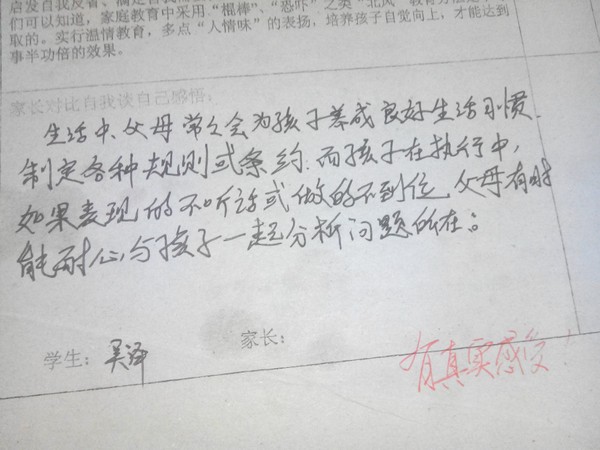 启发自我反省、满足自我需
们可以知道，家庭教育中采用“棍棒”、“恐吓”之类“北风”教育方法是
取的。实行温情教育，多点“人情味”的表扬，培养孩子自觉向上，才能达到
事半功倍的效果。
家长对比自我谈自己感悟：
生活中、父母常久会为孩子养成良好生活习惯、
制定各种规则或条约、而孩子在执行中，
如果表现的不听话或做的不到位、父母有时
能耐心与孩子一起分析问题所在。
学生：吴泽
家长：
有真实感受！